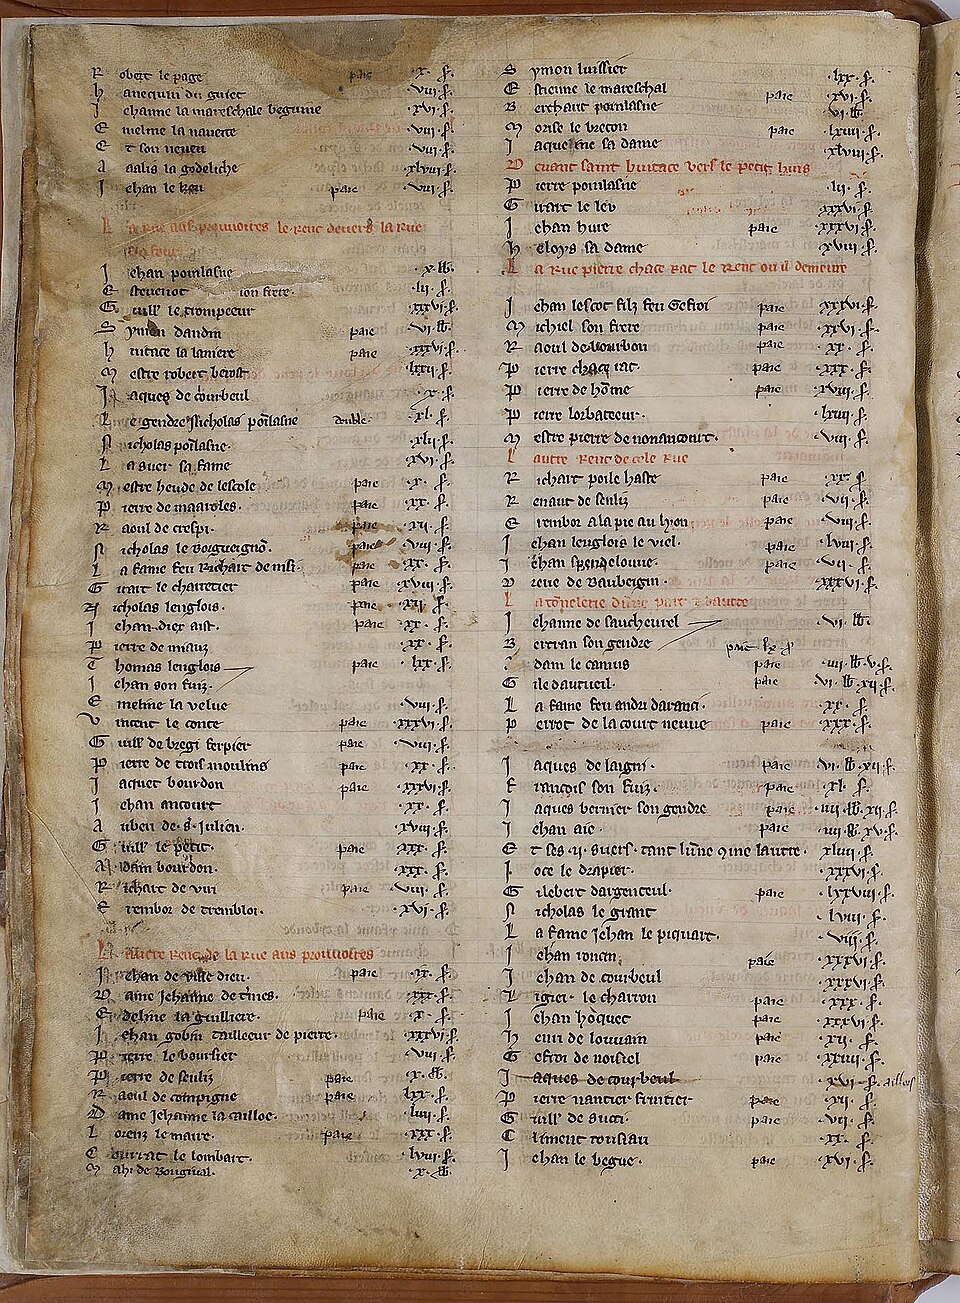 Robert le page paie .x. s.
hanequin du guiet .viii. s.
Jehanne la mareschale beguine .xvi. s.
Emeline la naueite .viii. s.
Et son neueu .viii. s.
Aaalis la godeliche .xlviii. s.
Jehan le keu paie .viii. s.
La rue aus prouuoires le renc deuers la rue
Jehan poinlasne .x. lb.
Esteuenot son frere .lii. s.
Guill le trompeeur .xxxvi. s.
Symon dandin paie .vi. lb.
huitace la laniere paie .xxxvi. s.
Mestre robert .lxxii. s.
Jaques de courbeul .x. s.
Le gendre Nicholas poilasne .xl. s.
Nicholas poilasne .xlii. s.
La suer sa fame .xvi. s.
Mestre heude de lescole paie .x. s.
Pierre de maaroles paie .xx. s.
Raoul de crespi paie .xii. s.
Nicholas le borgueigno paie .viii. s.
La fame feu Richart de nisi paie .xx. s.
Guiart le charretier paie .xviii. s.
Nicholas lenglois paie .xii. s.
Jehan diex aist paie .xx. s.
Pierre de miauz .xx. s.
Thomas lenglois paie .lxx. s.
Jehan son fuiz
Emeline la velue .viii. s.
Vincent le conte paie .xxxvi. s.
Guill de bregi ferpier paie .viii. s.
Pierre de trois moulins paie .xx. s.
Jaquet bourdon paie .xxxvi. s.
Jehan ancourt .xx. s.
Auben de s. Julien .xviii. s.
Guill le petit paie .xxx. s.
Adam bourdon .xxx. s.
Richart de viri paie .viii. s.
Erembor de trembloi .xvi. s.
Lautre renc de la rue aus prouuoires
Jehan de ville dieu paie .ix. s.
Dame Jehanne de tines .xxx. s.
Edeline la guilliere paie .x. s.
Jehan gobin tailleeur de pierre .xxxvi. s.
Pierre le boursier .viii. s.
Pierre de senliz paie .x. lb.
Raoul de compigne paie .lxx. s.
Dame Jehanne la tailloe .liiii. s.
Lorenz le maire paie .xxx. s.
Courrat le lombart .lviii. s.
Mahi de bougiual .x. lb.
Symon luissier .lxx. s.
Estienne le mareschal paie .xvi. s.
Berthaut poinlasne .vi. lb.
Morise le breton paie .lxviii. s.
Jaqueline sa dame .xlviii. s.
Deuant saint huitace vers le petit huis
Pierre poinlasne .lii. s.
Guiart le leu .xxxvi. s.
Jehan hure paie .xxxvi. s.
heloys sa dame .xviii. s.
La rue pierre chace rat le renc ou il demeure
Jehan lescot filz feu Gefroi paie .xxxvi. s.
Michiel son frere paie .xxvi. s.
Raoul de bourbon paie .xx. s.
Pierre chace rat paie .xxx. s.
Pierre de home paie .xviii. s.
Pierre lorbateeur .lxiii. s.
Mestre pierre de nonancourt .viii. s.
Lautre renc de cele rue
Richart poile haste paie .xx. s.
Renaut de senliz paie .vii. s.
Erembor a la pie au lyon paie .viii. s.
Jehan lenglois le viel paie .lviii. s.
Jehan spendelouue paie .vii. s.
Dreue de baubeigni .xxxvi. s.
La tonelerie dune part
Jehanne de saucheurel .vi. lb.
Bertran son gendre paie lx s
dam le camus paie .iiii. lb. v. s.
Gile dauteuil paie .vi. lb. xii. s.
La fame feu andri daranci .xx. s.
Perrot de la court neuue paie .xxx. s.
Jaques de laigni paie .vi. lb. xii. s.
Francois son fuiz paie .xl. s.
Jaques bernier son gendre paie .iiii. lb. xii. s.
Jehan aie paie .iiii. lb. xv. s.
Et ses .ii. suers tant lune 9me lautre .xlviii. s.
Joce le drapier .xxxvi. s.
Gilebert dargenteul paie .lxxviii. s.
Nicholas le grant .lviii. s.
La fame Jehan le piquart .viii. s.
Jehan roncin paie .xxxvi. s.
Jehan de courbeul .xxxvi. s.
Ligier le charron paie .xxx. s.
Jehan hoquet paie .xxxvi. s.
Henri de louuain paie .xii. s.
Gefroi de noisiel paie .xxiiii. s.
Jaques de courbeul .xvi. s. aillors
Pierre nantier fruitier paie .xii. s.
Guill de suci paie .vii. s.
Climent rousiau .xx. s.
Jehan le begue paie .xvi. s.